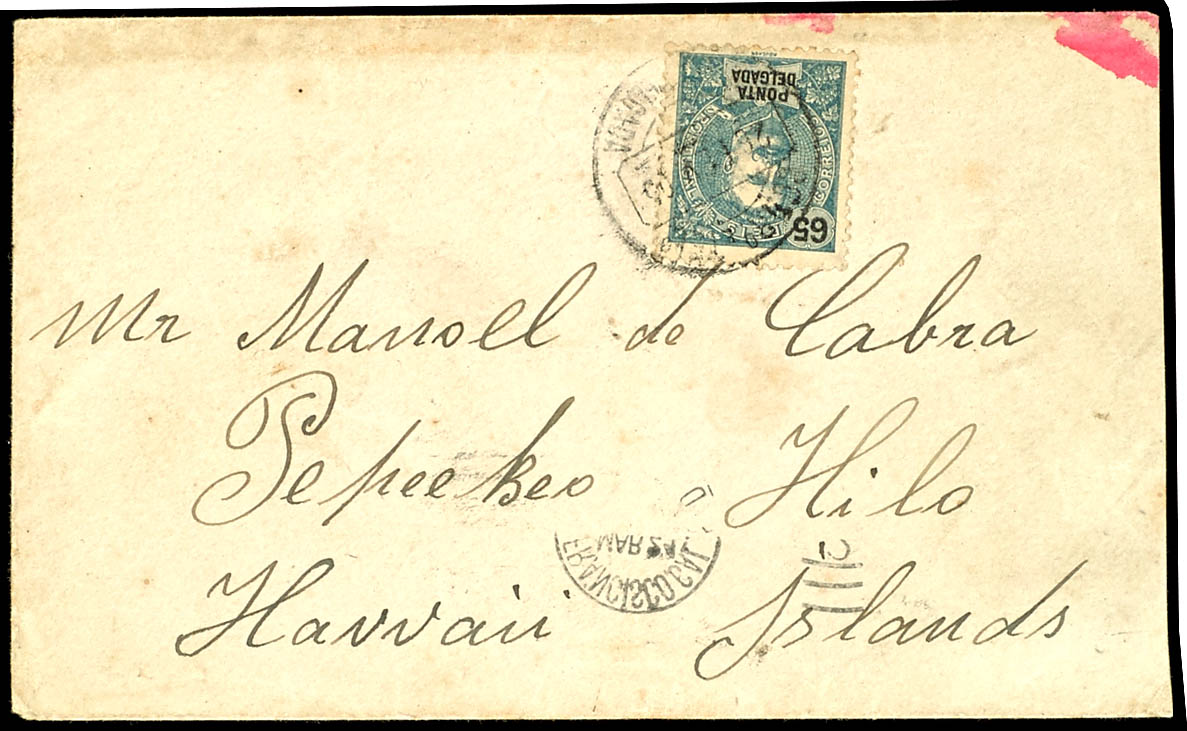 PONTA
DELGADA
CORREIOS
65
Mr Manoel de Cabra
Pepeekeo Hilo
Hawaii Islands
MAR 24
FRANCISCO, CAL